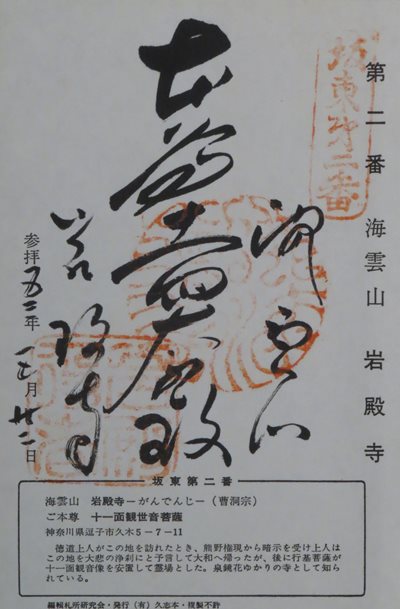 第二番 海雲山 岩殿寺
坂東第二番
海雲山
本尊十一面大悲殿
岩殿寺
参拝五二年十一月廿二日
坂東第二番
海雲山 岩殿寺－がんでんじ－（曹洞宗）
ご本尊 十一面観世音菩薩
神奈川県逗子市久木5－7－11
徳道上人がこの地を訪れたとき、熊野権現から暗示を受け上人は
この地を大悲の浄刹にと予言して大和へ帰ったが、後に行基菩薩が
十一面観音像を安置して霊場とした。泉鏡花ゆかりの寺として知ら
れている。
編輯札所研究会・発行（有）久志本・複製不許